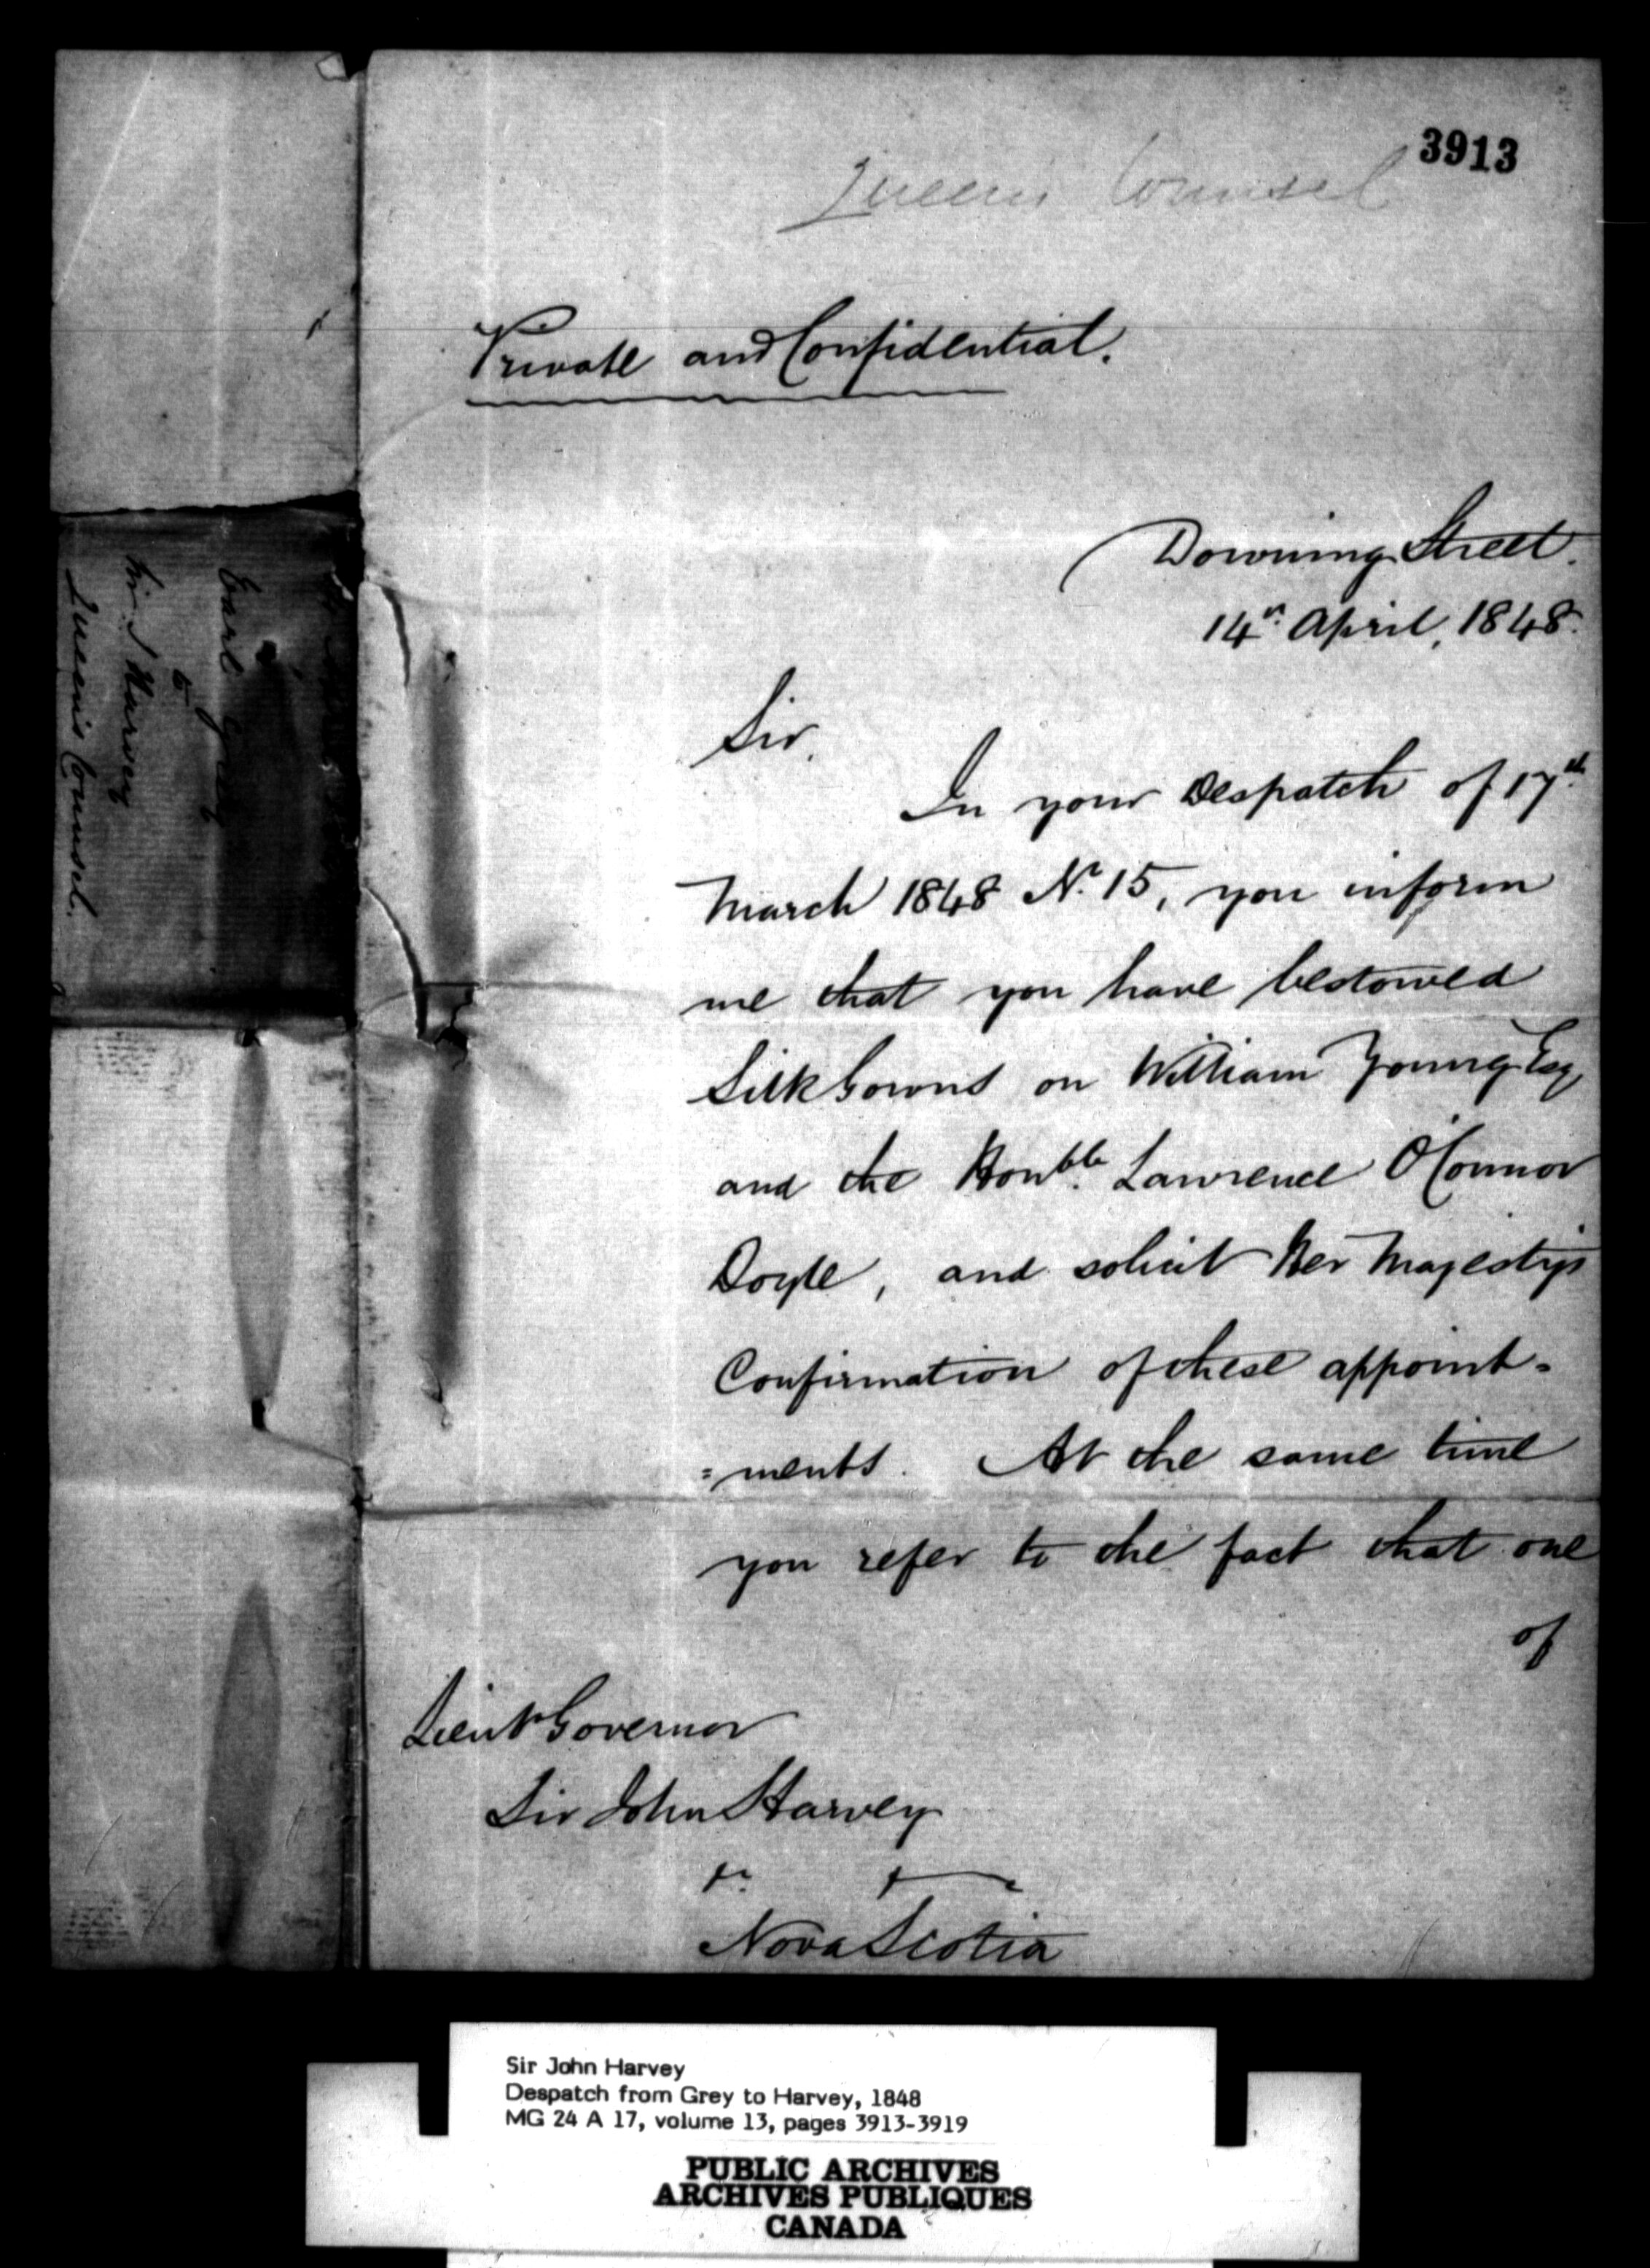 3913
Queen's Counsel
Private and Confidential.
Downing Street.
14th April, 1848.
Sir,
In your Despatch of 17th
March 1848 No. 15, you inform
me that you have bestowed
Silk Gowns on William Young Esq
and the Honble. Lawrence O'Connor
Doyle, and solicit Her Majesty's
Confirmation of these appoint=
=ments. At the same time
you refer to the fact that one
of
Lieut Governor
Sir John Harvey
&c. &c
Nova Scotia
Earl Grey
to
Sir J Harvey
Queen's Counsel.
Sir John Harvey
Despatch from Grey to Harvey, 1848
MG 24 A 17, volume 13, pages 3913-3919
PUBLIC ARCHIVES
ARCHIVES PUBLIQUES
CANADA